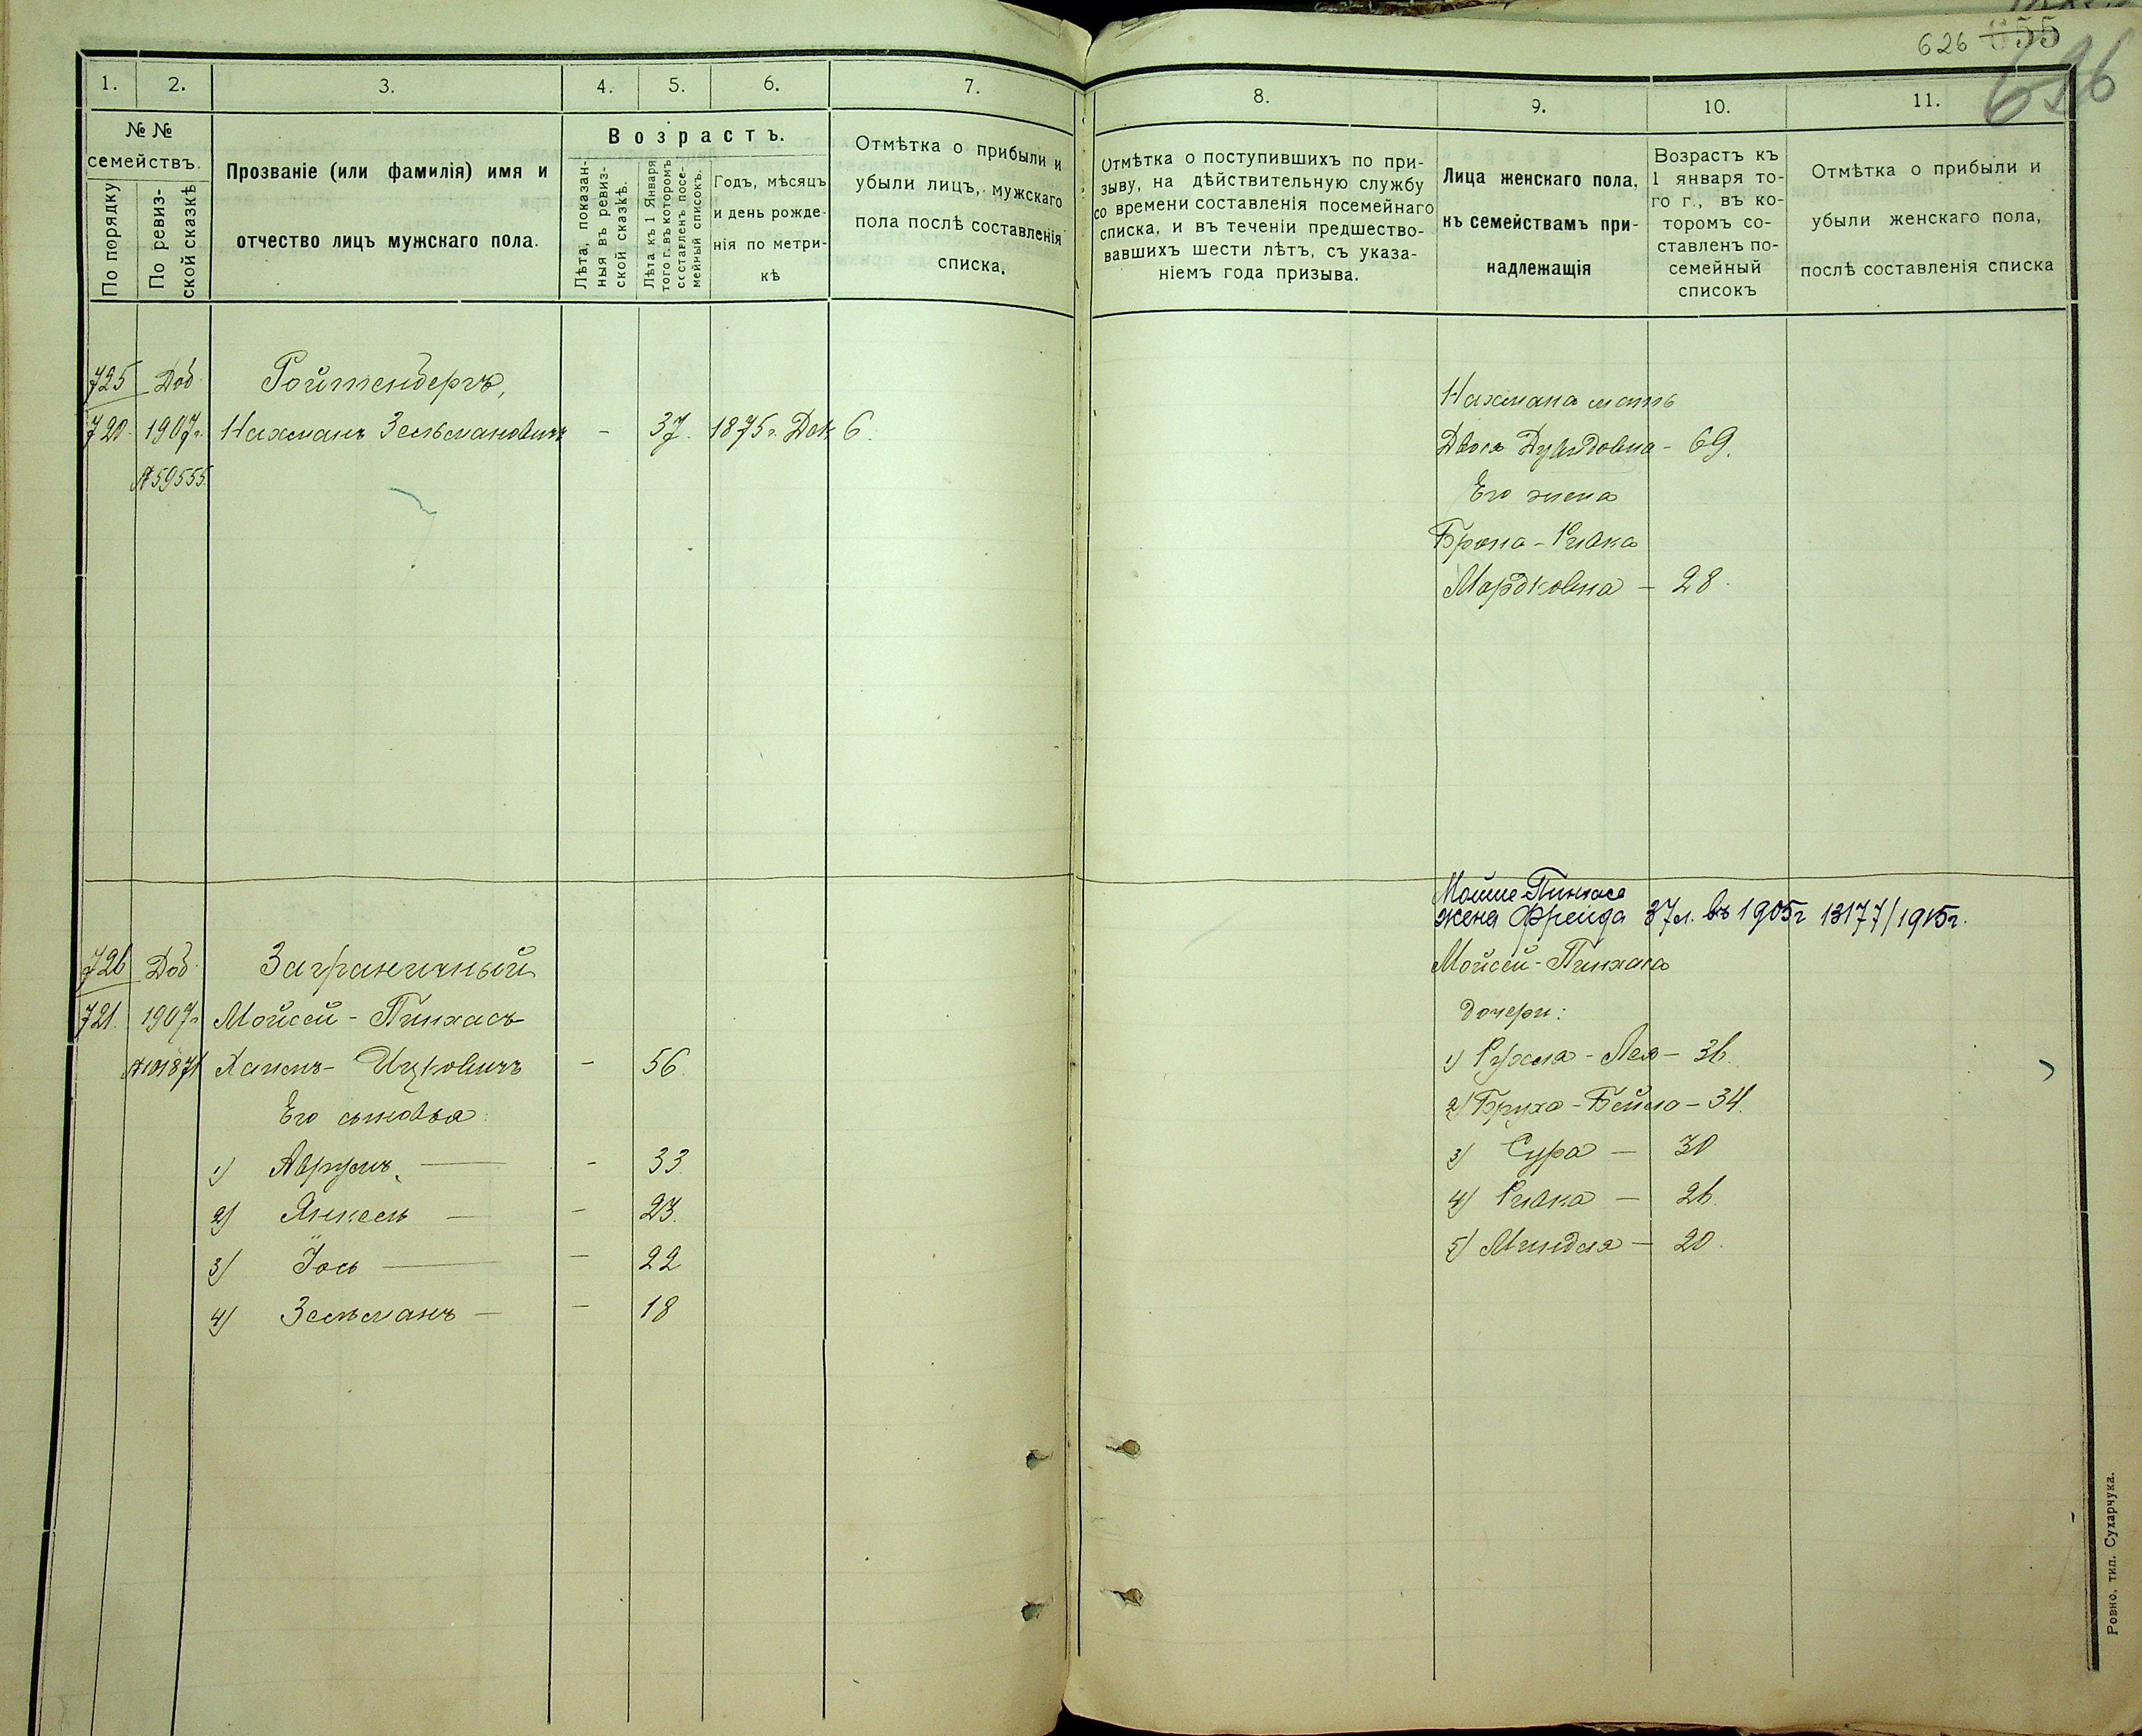 626 655
696
1. 2. 3. 4. 5. 6. 7.
№ № семействъ.
По порядку
По ревизской сказкѣ
Прозваніе (или фамилія) имя и
отчество лицъ мужскаго пола.
Возрастъ.
Лѣта, показан-
ныя въ ревиз-
ской сказкѣ.
Лѣта къ 1 Января
того г. въ которомъ
составленъ посе-
мейный списокъ.
Годъ, мѣсяцъ
и день рожде-
нія по метри-
кѣ
Отмѣтка о прибыли и
убыли лицъ, мужскаго
пола послѣ составленія
списка.
725 Доб. Ройтенбергъ,
720. 1907г. Нахманъ Зельмановичъ - 37. 1875г. Дек 6.
№59555.
726 Доб. Заграничный
721. 1907г. Мойсей-Пинхасъ
№101871 Хаимъ-Ицковичъ - 56.
Его сыновья:
1) Аврумъ - 33.
2) Янкель - 23.
3) Іось - 22
4) Зельманъ - 18
8. 9. 10. 11.
Отмѣтка о поступившихъ по при-
зыву, на дѣйствительную службу
со времени составленія посемейнаго
списка, и въ теченіи предшество-
вавшихъ шести лѣтъ, съ указа-
ніемъ года призыва.
Лица женскаго пола,
къ семействамъ при-
надлежащія
Возрастъ къ
1 января то-
го г., въ ко-
торомъ со-
ставленъ по-
семейный
списокъ
Отмѣтка о прибыли и
убыли женскаго пола,
послѣ составленія списка
Нахмана мать
Двося Дувидовна - 69.
Его жена
Брана-Ривка
Мордковна - 28.
Мошие Пинхаса
жена Фрейда 37л. въ 1905г 13177/1915г.
Мойсей-Пинхаса
дочери:
1) Рухля-Лея - 36.
2) Бруха-Бейла - 34.
3) Сура - 30
4) Ривка - 26.
5) Миндля - 20.
Ровно, тип. Сухарчука.